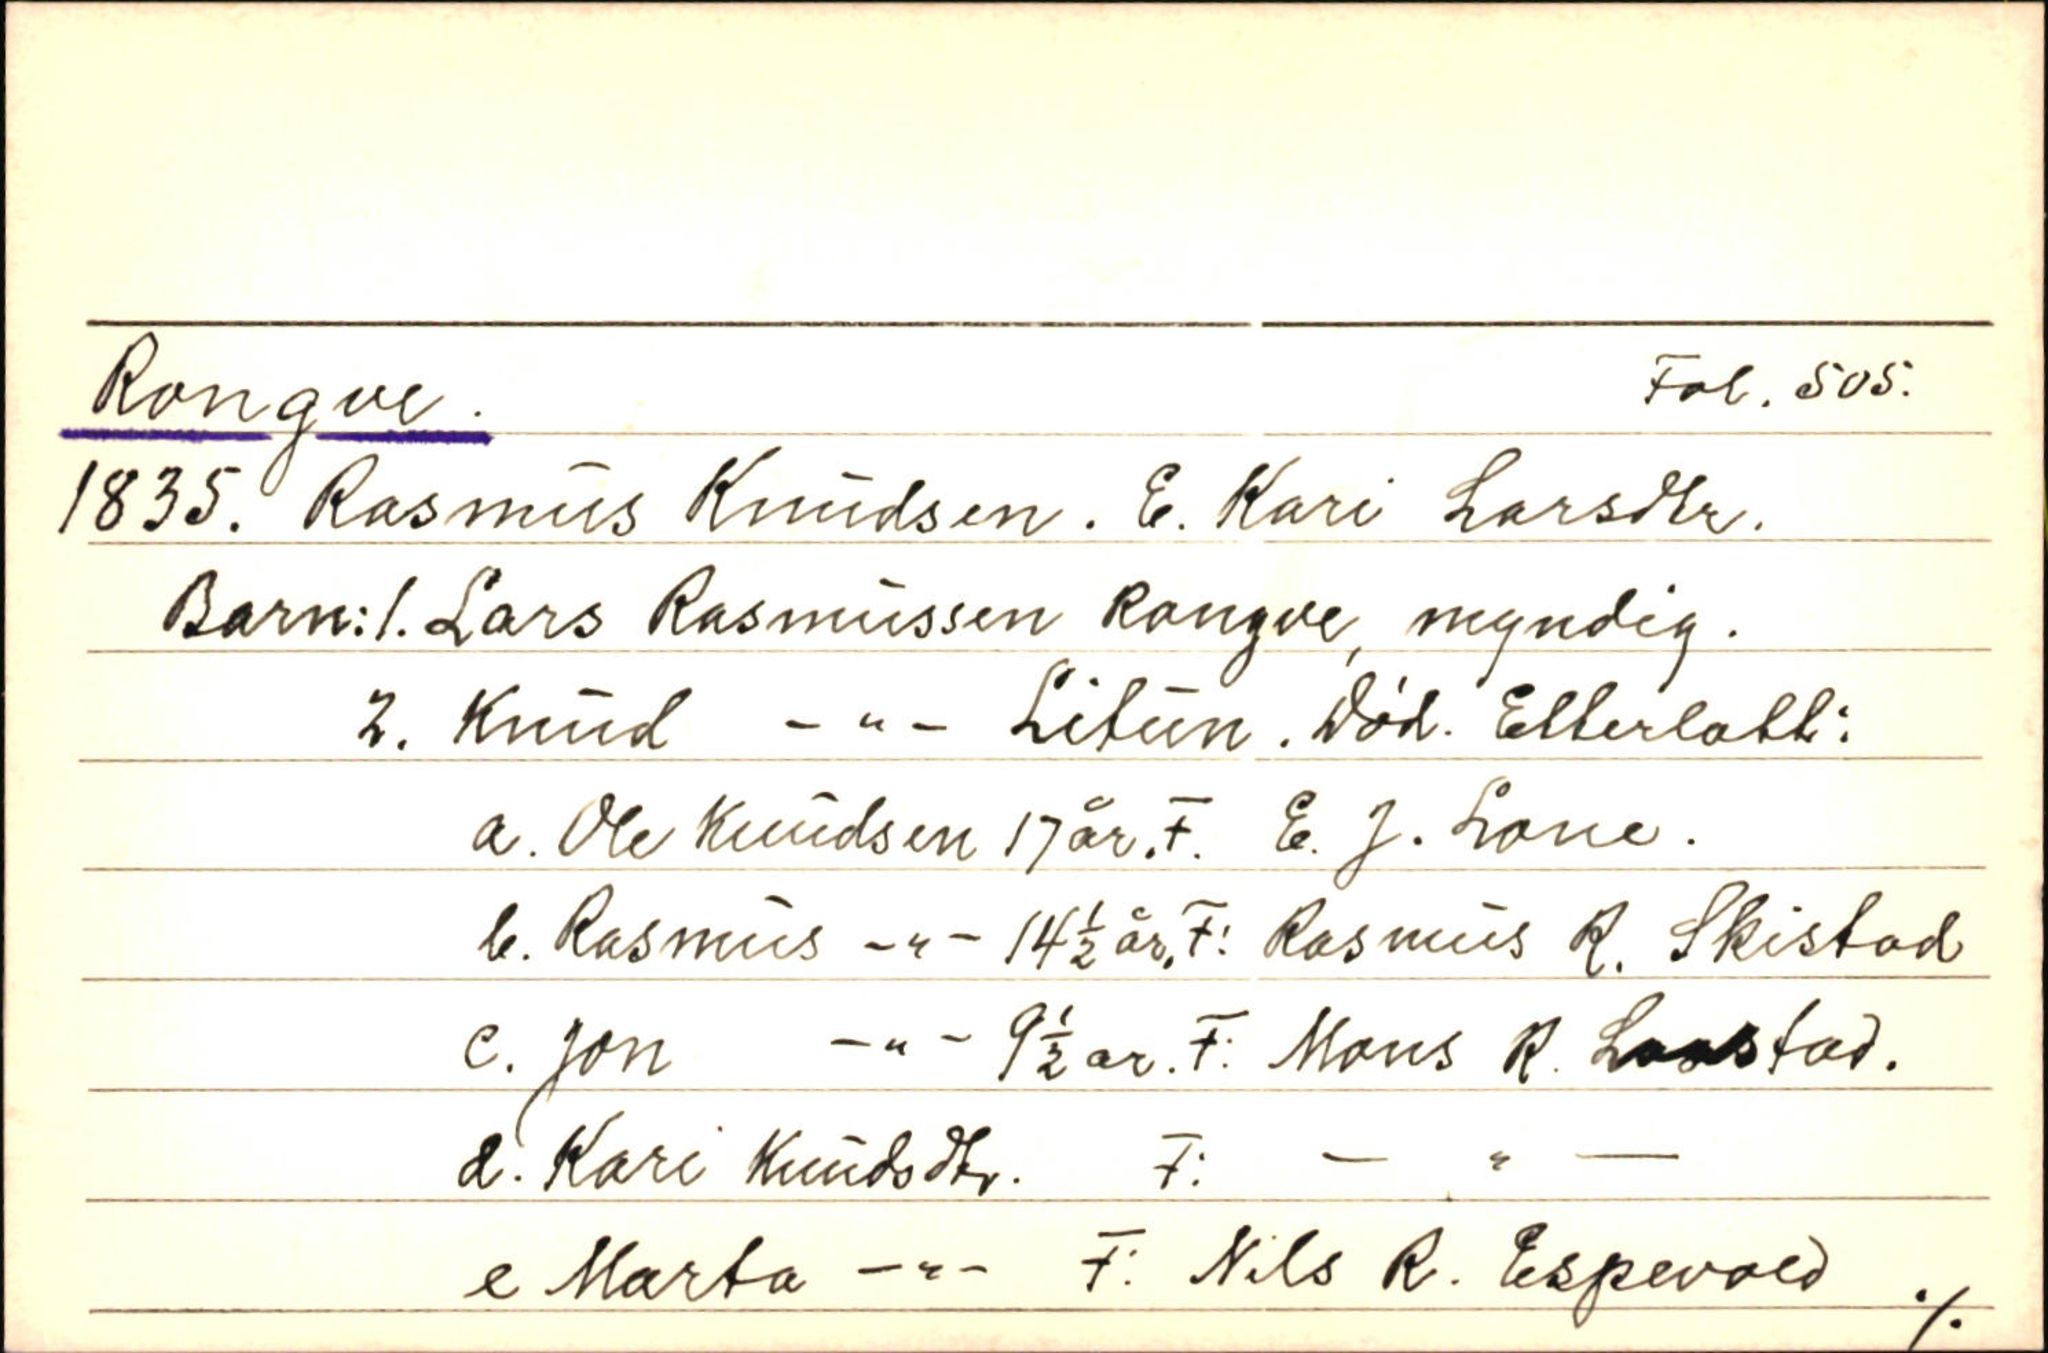 Rongve. Fol. 505.
1835. Rasmus Knudsen. E. Kari Larsdtr.
Barn: 1. Lars Rasmussen Rongve, myndig.
2. Knud - " - Litun. Död. Etterlatt:
a. Ole Knudsen 17 år. F. E. J. Lone.
b. Rasmus - " - 14 1/2 år. F: Rasmus R. Skistad
c. Jon - " - 9 1/2 ar. F: Mons R.
d. Kari Knudsdtr. F: - " -
e Marta - " - F: Nils R. Espevold ./.